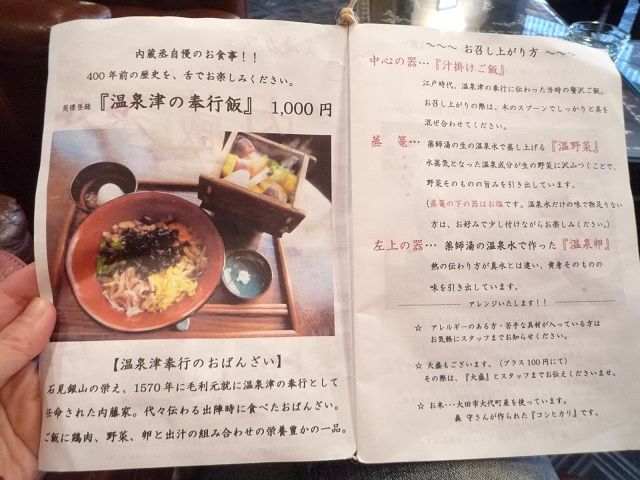 内蔵丞自慢のお食事！！
400年前の歴史を、舌でお楽しみください。
商標登録 『温泉津の奉行飯』 1,000円
【温泉津奉行のおばんざい】
石見銀山の栄え、1570年に毛利元就に温泉津の奉行として
任命された内藤家。代々伝わる出陣時に食べたおばんざい。
ご飯に鶏肉、野菜、卵と出汁の組み合わせの栄養豊かの一品。
～～～ お召し上がり方 ～～～
中心の器…『汁掛けご飯』
江戸時代、温泉津の奉行に伝わった当時の贅沢ご飯。
お召し上がりの際は、木のスプーンでしっかりと具を
混ぜ合わせてください。
蒸 篭… 薬師湯の生の温泉水で蒸し上げる『温野菜』
水蒸気となった温泉成分が生の野菜に沢山つくことで、
野菜そのものの旨みを引き出しています。
（蒸篭の下の器はお塩です。温泉水だけの味で物足りない
方は、お好みで少し付けながらお楽しみください。）
左上の器… 薬師湯の温泉水で作った『温泉卵』
熱の伝わり方が真水とは違い、黄身そのものの
味を引き出しています。
アレンジいたします！！
☆ アレルギーのある方・苦手な具材が入っている方は
お気軽にスタッフまでお知らせください。
☆ 大盛もございます。（プラス100円にて）
その際は、『大盛』とスタッフまでお伝えくださいませ。
☆ お米…大田市大代町産を使っています。
森 守さんが作られた『コシヒカリ』です。